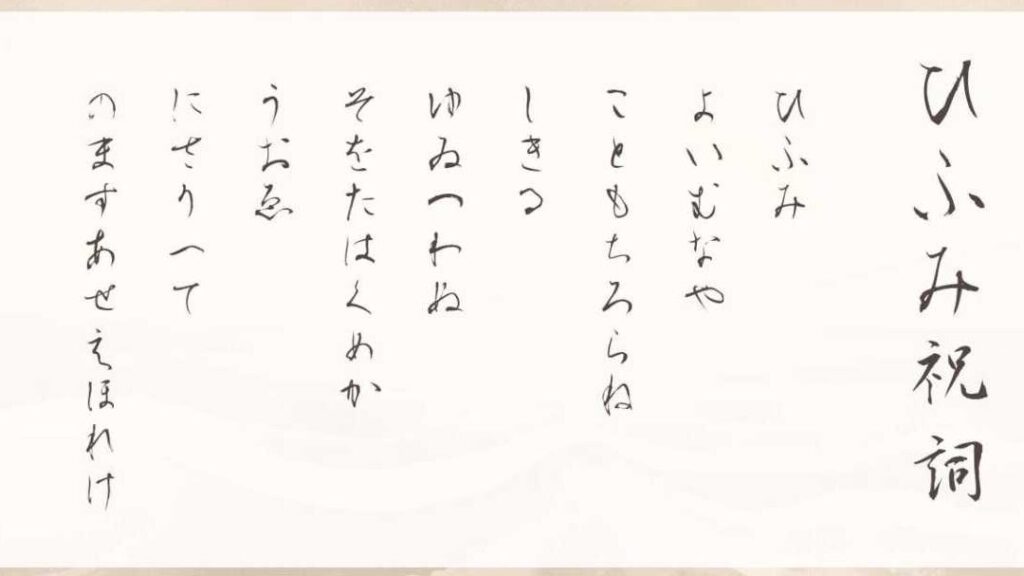 ひふみ祝詞
ひふみ
よいむなや
こともちろらね
しきる
ゆゐつわぬ
そをたはくめか
うおゑ
にさりへて
のますあせえほれけ